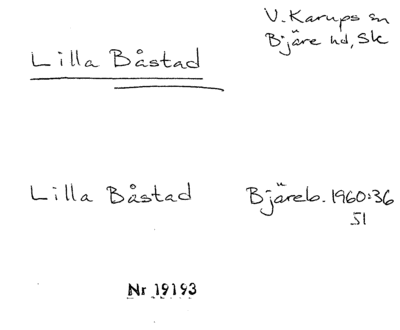 V. Karups sn
Bjäre hd, Sk
Lilla Båstad
Lilla Båstad Bjäreb. 1960:36
51
Nr 19193